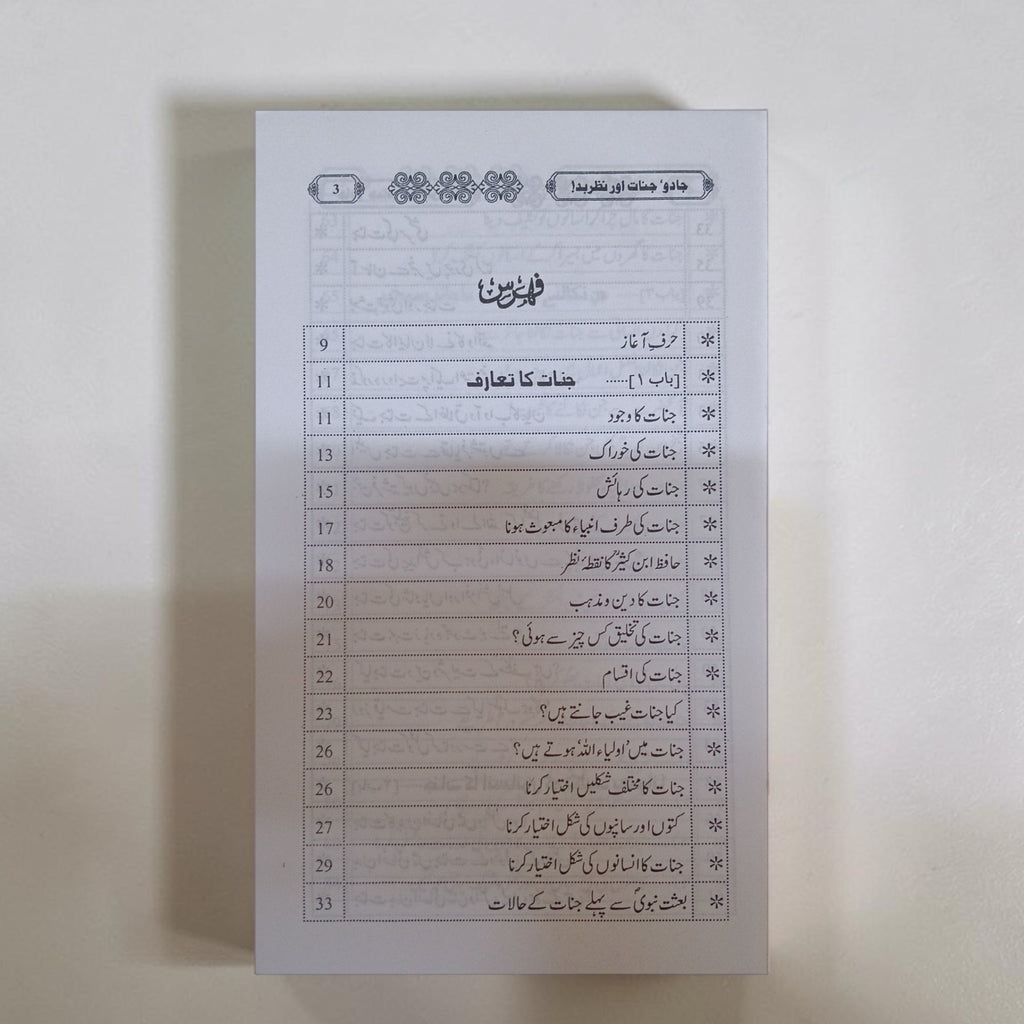 جادو، جنات اور نظر بد! 3
فہرس
* حرفِ آغاز 9
* [باب ۱]...... جنات کا تعارف 11
* جنات کا وجود 11
* جنات کی خوراک 13
* جنات کی رہائش 15
* جنات کی طرف انبیاء کا مبعوث ہونا 17
* حافظ ابن کثیرؒ کا نقطۂ نظر 18
* جنات کا دین و مذہب 20
* جنات کی تخلیق کس چیز سے ہوئی؟ 21
* جنات کی اقسام 22
* کیا جنات غیب جانتے ہیں؟ 23
* جنات میں 'اولیاء اللہ' ہوتے ہیں؟ 26
* جنات کا مختلف شکلیں اختیار کرنا 26
* کتوں اور سانپوں کی شکل اختیار کرنا 27
* جنات کا انسانوں کی شکل اختیار کرنا 29
* بعثت نبویؐ سے پہلے جنات کے حالات 33